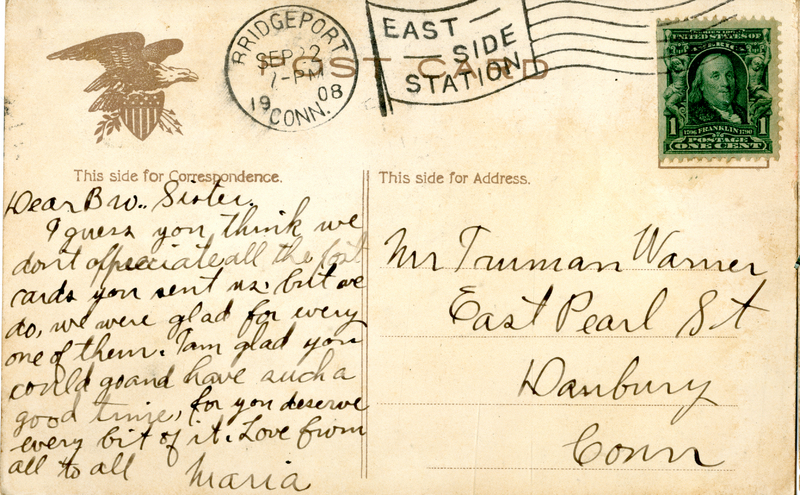 POST CARD
BRIDGEPORT
SEP 22
7-PM
1908
CONN.
EAST
SIDE
STATION
UNITED STATES OF
AMERICA
1 1706 FRANKLIN 1790 1
POSTAGE
ONE CENT
This side for Correspondence.
Dear Bro.. Sister.
I guess you think we
don't appeciate all the post
cards you sent us. but we
do, we were glad for every
one of them. I am glad you
could go and have such a
good time, for you deserve
every bit of it. Love from
all to all Maria
This side for Address.
Mr Truman Warner
East Pearl St
Danbury
Conn